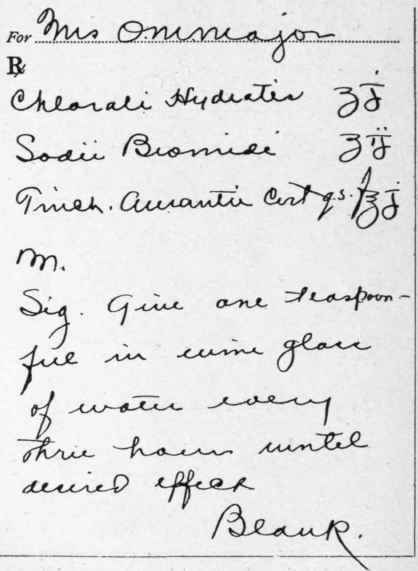 For Mrs O.M. Major
℞
Chlorali Hydratis ʒj
Sodii Bromidi ʒij
Tinct. Aurantii Cort q.s. ℥j
M.
Sig. Give one teaspoon-
ful in wine glass
of water every
three hours until
desired effect
Blank.